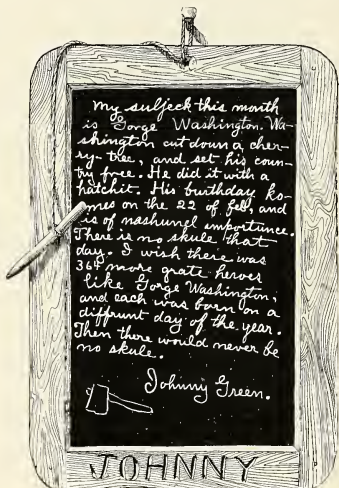 my subjeck this month
is Gorge Washington. Wa-
shington cut down a cher-
ry-tree, and set his coun-
try free. He did it with a
hatchit. His burthday ko-
mes on the 22 of feb, and
is of nashunel importunce.
There is no skule that
day. I wish there was
364 more grate heroes
like Gorge Washington,
and each was born on a
diffrunt day of the year.
Then there would never be
no skule.
Johnny Green.
JOHNNY